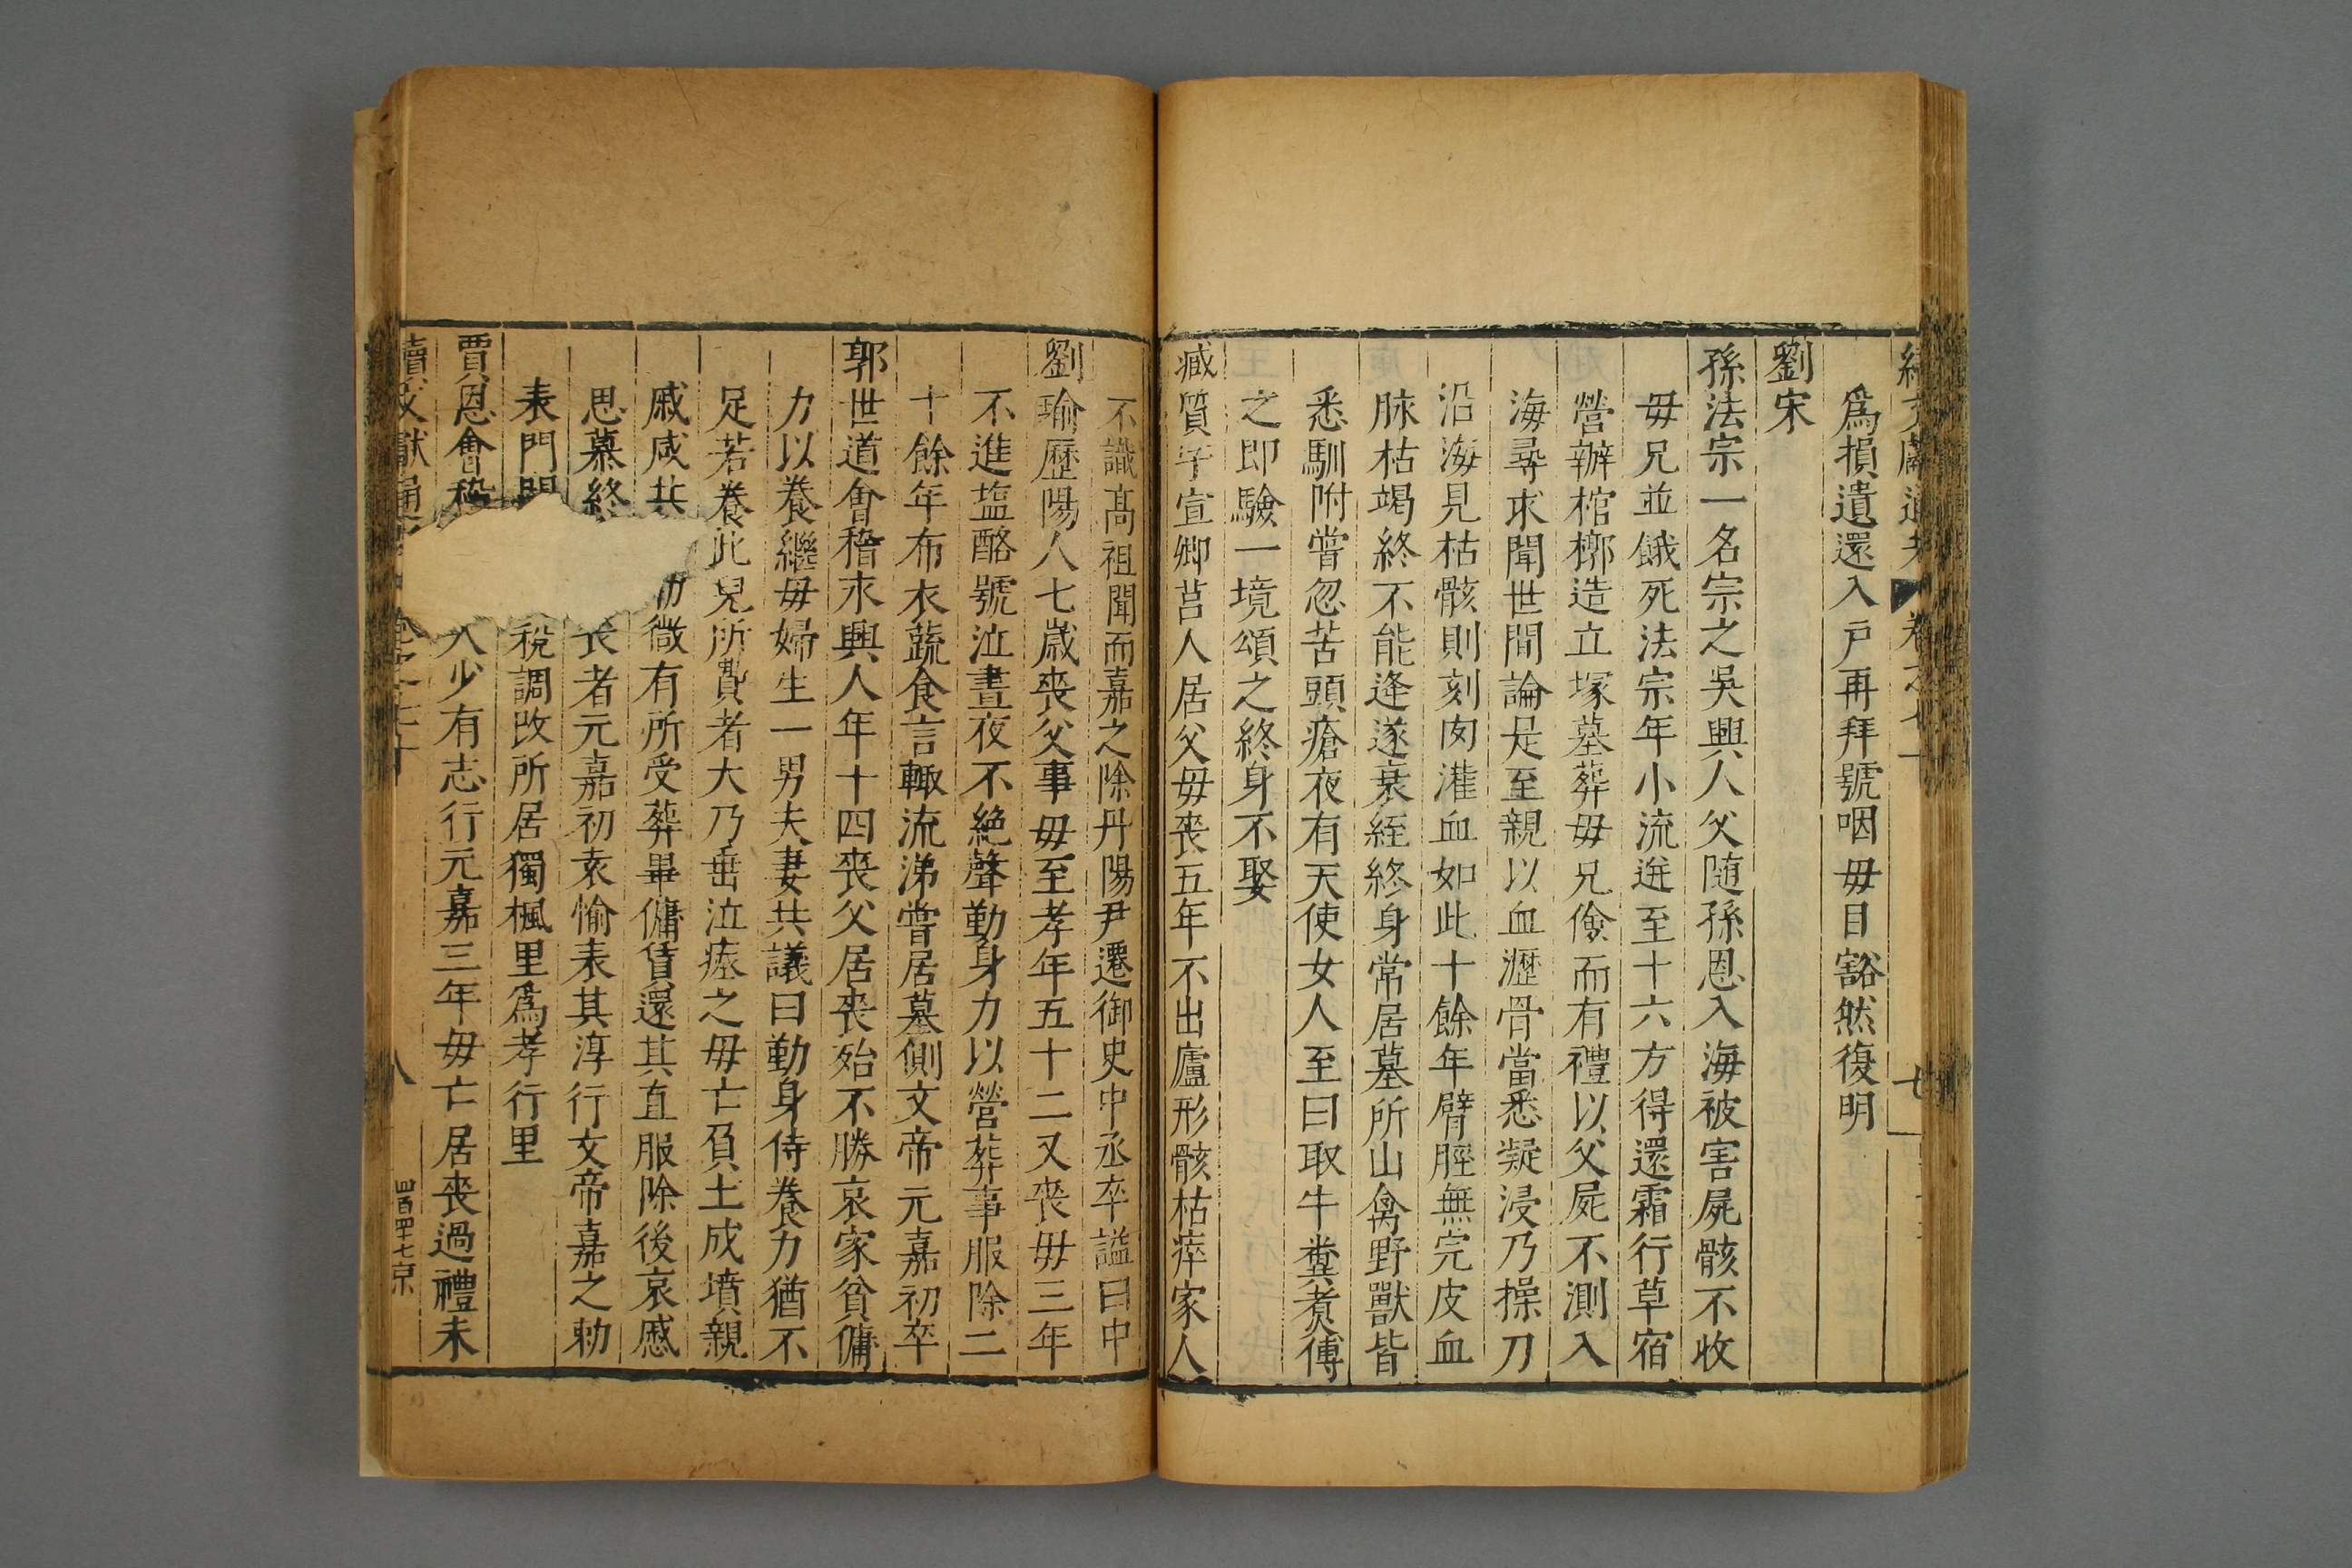 續文獻通考 卷之七十 七
爲損遺還入戶再拜號咽毋目豁然復明
劉宋
孫法宗一名宗之吳興人父随孫恩入海被害屍骸不收
毋兄並餓死法宗年小流迸至十六方得還霜行草宿
營辦棺槨造立塚墓葬毋兄儉而有禮以父屍不測入
海尋求聞世間論是至親以血瀝骨當悉凝浸乃操刀
沿海見枯骸則刻肉灌血如此十餘年臂脛無完皮血
脉枯竭終不能逢遂衰絰終身常居墓所山禽野獸皆
悉馴附嘗忽苦頭瘡夜有天使女人至曰取牛糞煑傅
之即驗一境頌之終身不娶
臧質字宣卿莒人居父毋喪五年不出廬形骸枯瘁家人
不識髙祖聞而嘉之除丹陽尹遷御史中丞卒謚曰中
劉瑜歷陽人七歲喪父事毋至孝年五十二又喪毋三年
不進塩酪號泣晝夜不絶聲勤身力以營葬事服除二
十餘年布衣蔬食言輙流涕嘗居墓側文帝元嘉初卒
郭世道會稽永興人年十四喪父居喪殆不勝哀家貧傭
力以養繼毋婦生一男夫妻共議曰勤身侍養力猶不
足若養此兒所費者大乃垂泣瘞之毋亡負土成墳親
戚咸共 微有所受葬畢傭賃還其直服除後哀慼
思慕終 長者元嘉初袁愉表其淳行文帝嘉之勅
表門閭 稅調改所居獨楓里爲孝行里
賈恩會稽 人少有志行元嘉三年毋亡居喪過禮未
續文獻通 卷之七十 八 四百四十七京